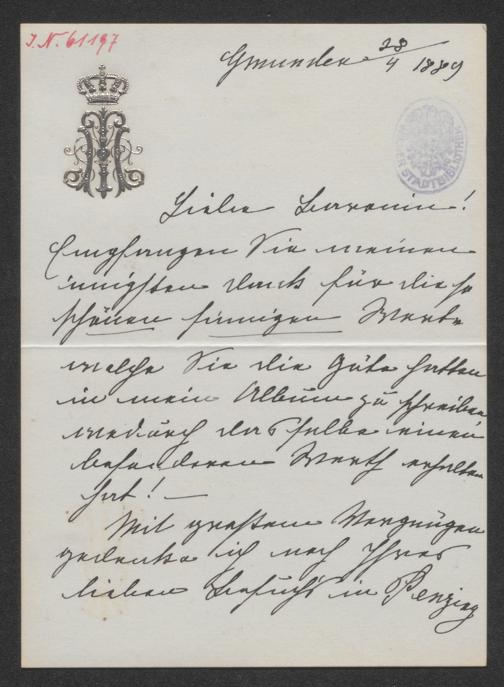 J.N. 61197
Gmunden 28/4 1889
Liebe Baronin!
Empfangen Sie meinen
innigsten Dank für die so
schönen sinnigen Worte
welche Sie die Güte hatten
in mein Album zu schreiben
wodurch dasselbe einen
besonderen Werth erhalten
hat! –
Mit großem Vergnügen
gedenke ich noch Ihres
lieben Besuchs in Penzing